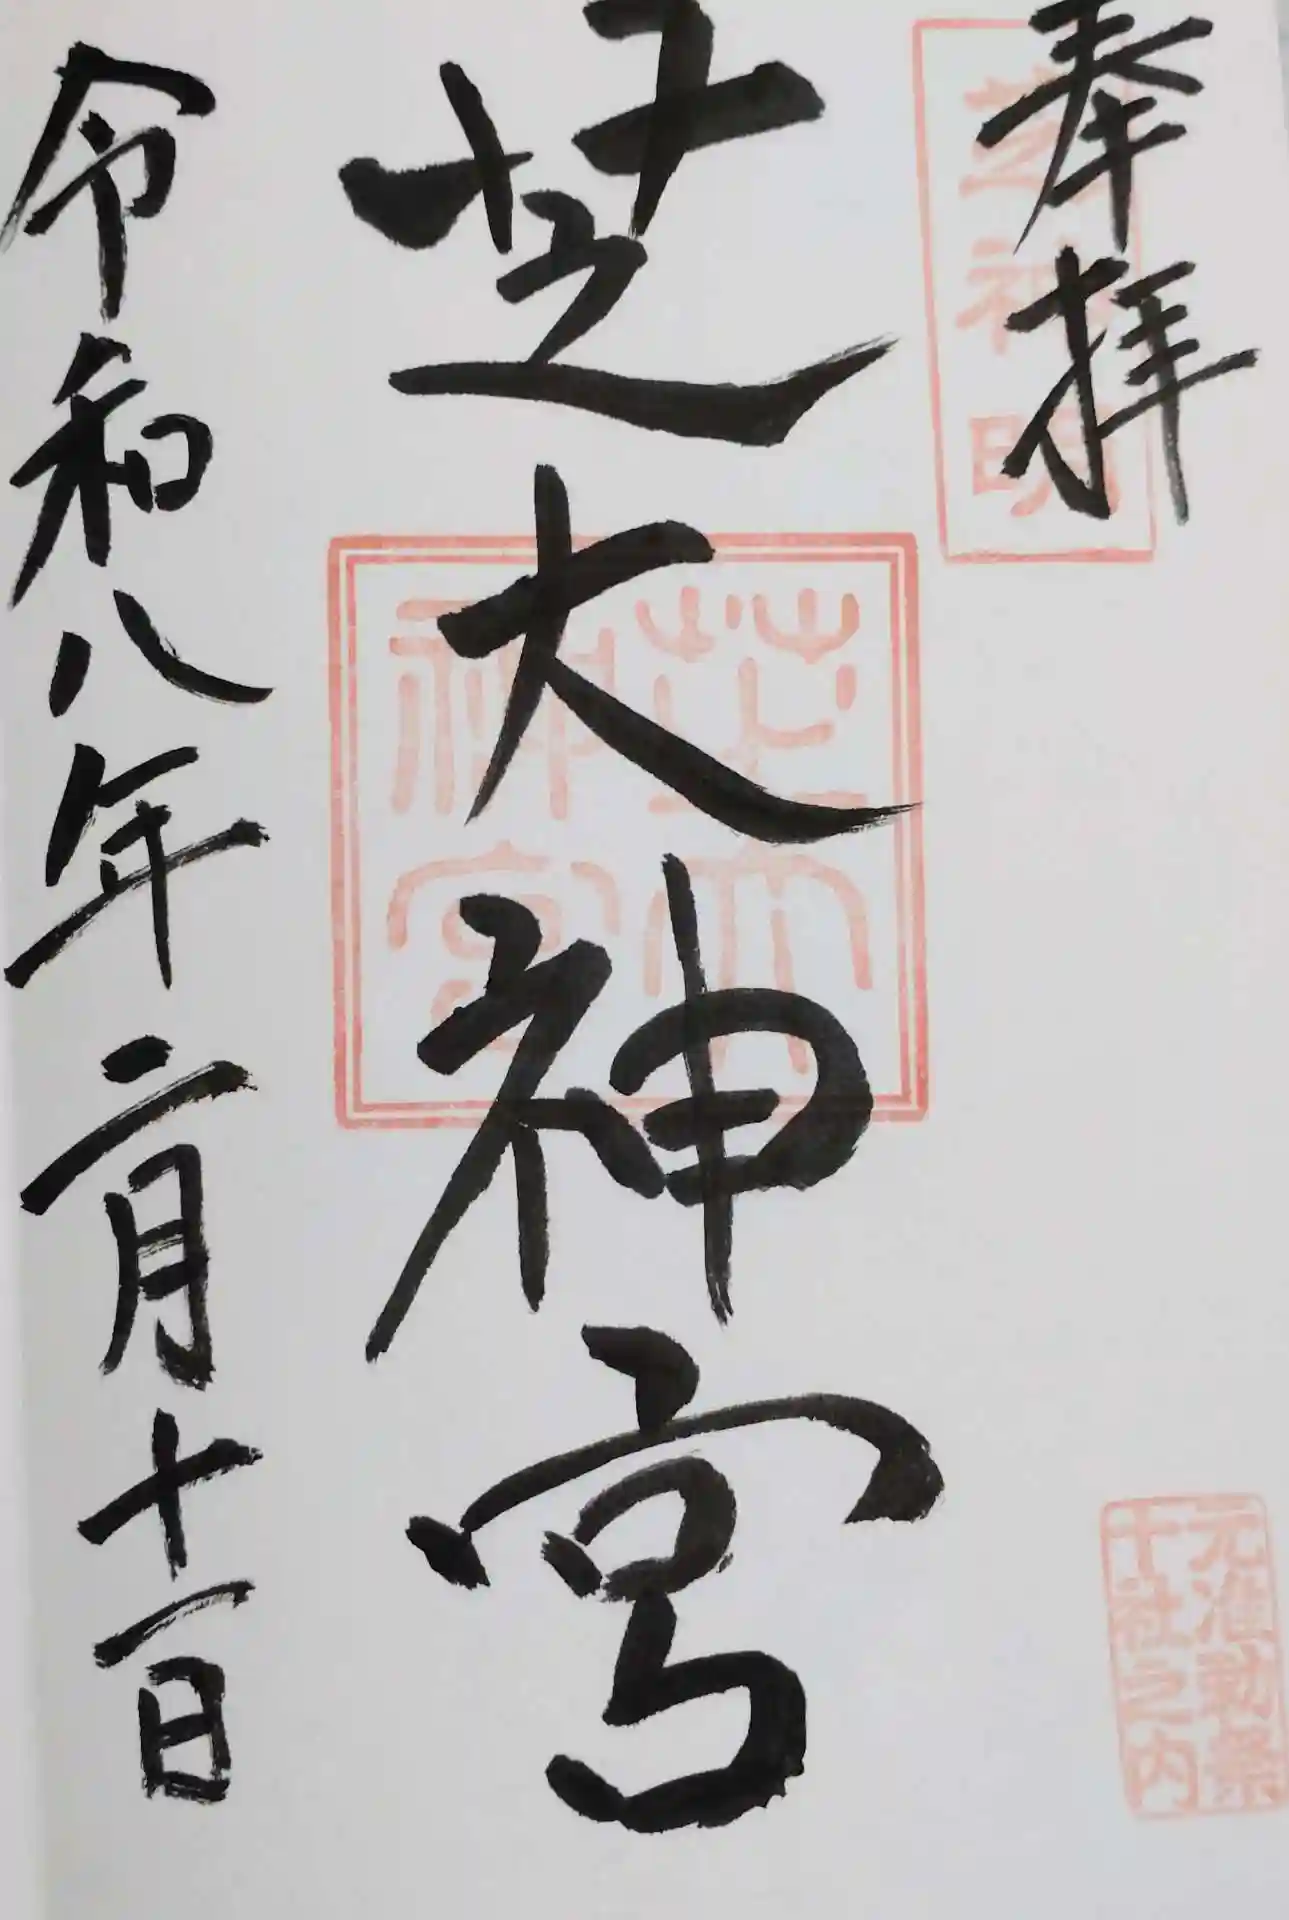 奉拝
芝神明
芝大神宮
芝大
神宮
令和八年二月十一日
元准勅祭
十社之内